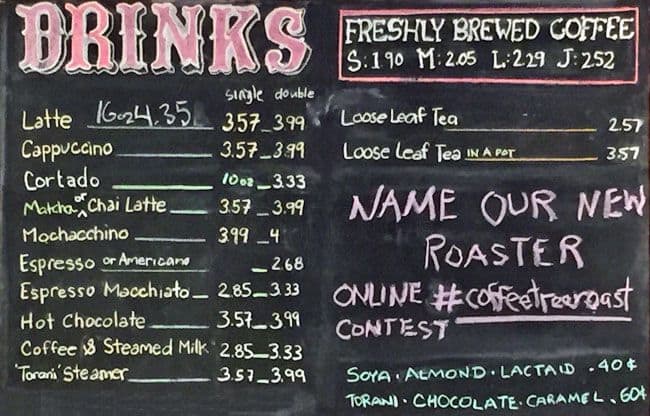 DRINKS
single double
Latte 16oz 4.35 3.57 3.99
Cappuccino 3.57 3.99
Cortado 10oz 3.33
Matcha or Chai Latte 3.57 3.99
Mochacchino 3.99 4
Espresso or Americano 2.68
Espresso Macchiato 2.85 3.33
Hot Chocolate 3.57 3.99
Coffee & Steamed Milk 2.85 3.33
'Torani' Steamer 3.57 3.99
FRESHLY BREWED COFFEE
S:1.90 M:2.05 L:2.29 J:2.52
Loose Leaf Tea 2.57
Loose Leaf Tea IN A POT 3.57
NAME OUR NEW
ROASTER
ONLINE #coffeetreeroast
CONTEST
SOYA · ALMOND · LACTAID .40¢
TORANI · CHOCOLATE · CARAMEL .60¢